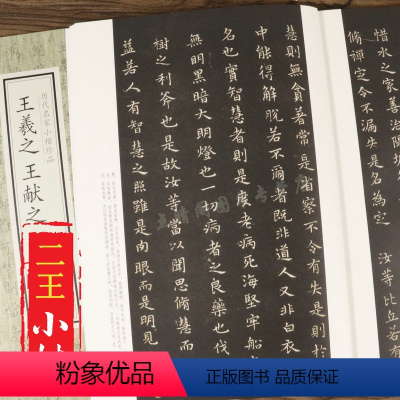 惜水之家善治隄
脩禪定令不漏失是名為定 汝等比丘若有
慧則無貪著常自省察不令有失是則於
中能得解脫若不爾者既非道人又非白衣
名也實智慧者則是度老病死海堅牢船
無明黑暗大明燈也一切病者之良藥也伐
樹之利斧也是故汝等當以聞思脩
益若人有智慧之照雖是肉眼而是明見
历代名家小楷珍品
王羲之 王献之
二王
小
粉象优品